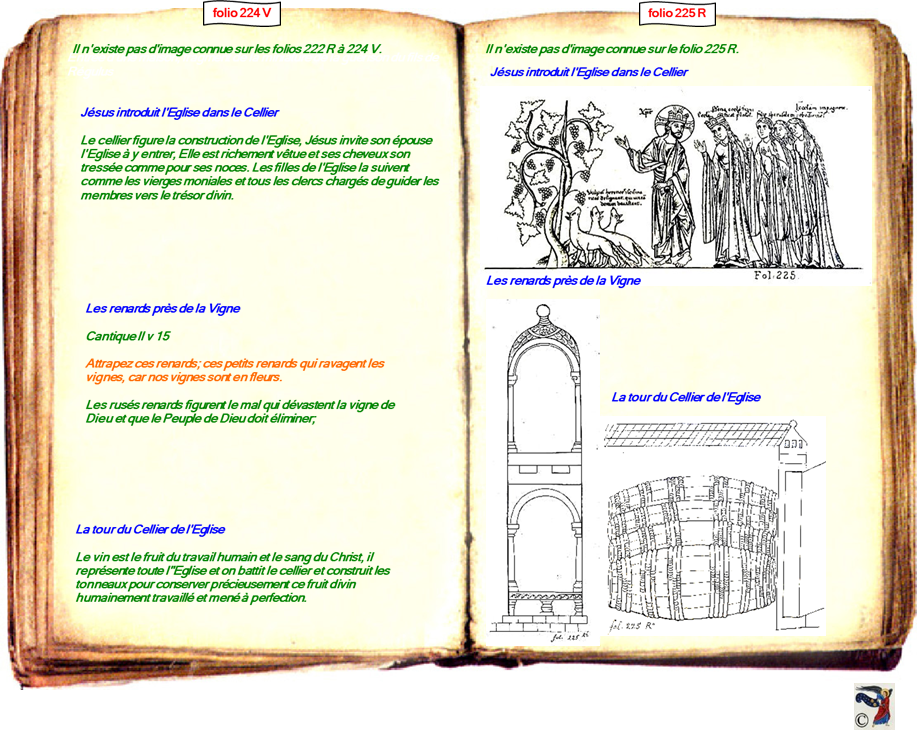 folio 224 V
Il n'existe pas d'image connue sur les folios 222 R à 224 V.
Jésus introduit l'Eglise dans le Cellier
Le cellier figure la construction de l'Eglise, Jésus invite son épouse
l'Eglise à y entrer, Elle est richement vêtue et ses cheveux son
tressée comme pour ses noces. Les filles de l'Eglise la suivent
comme les vierges moniales et tous les clercs chargés de guider les
membres vers le trésor divin.
Les renards près de la Vigne
Cantique II v 15
Attrapez ces renards; ces petits renards qui ravagent les
vignes, car nos vignes sont en fleurs.
Les rusés renards figurent le mal qui dévastent la vigne de
Dieu et que le Peuple de Dieu doit éliminer;
La tour du Cellier de l'Eglise
Le vin est le fruit du travail humain et le sang du Christ, il
représente toute l"Eglise et on battit le cellier et construit les
tonneaux pour conserver précieusement ce fruit divin
humainement travaillé et mené à perfection.
folio 225 R
Il n'existe pas d'image connue sur le folio 225 R.
Jésus introduit l'Eglise dans le Cellier
Fol. 225.
Les renards près de la Vigne
La tour du Cellier de l'Eglise
fol. 225 R
fol. 225 R
©